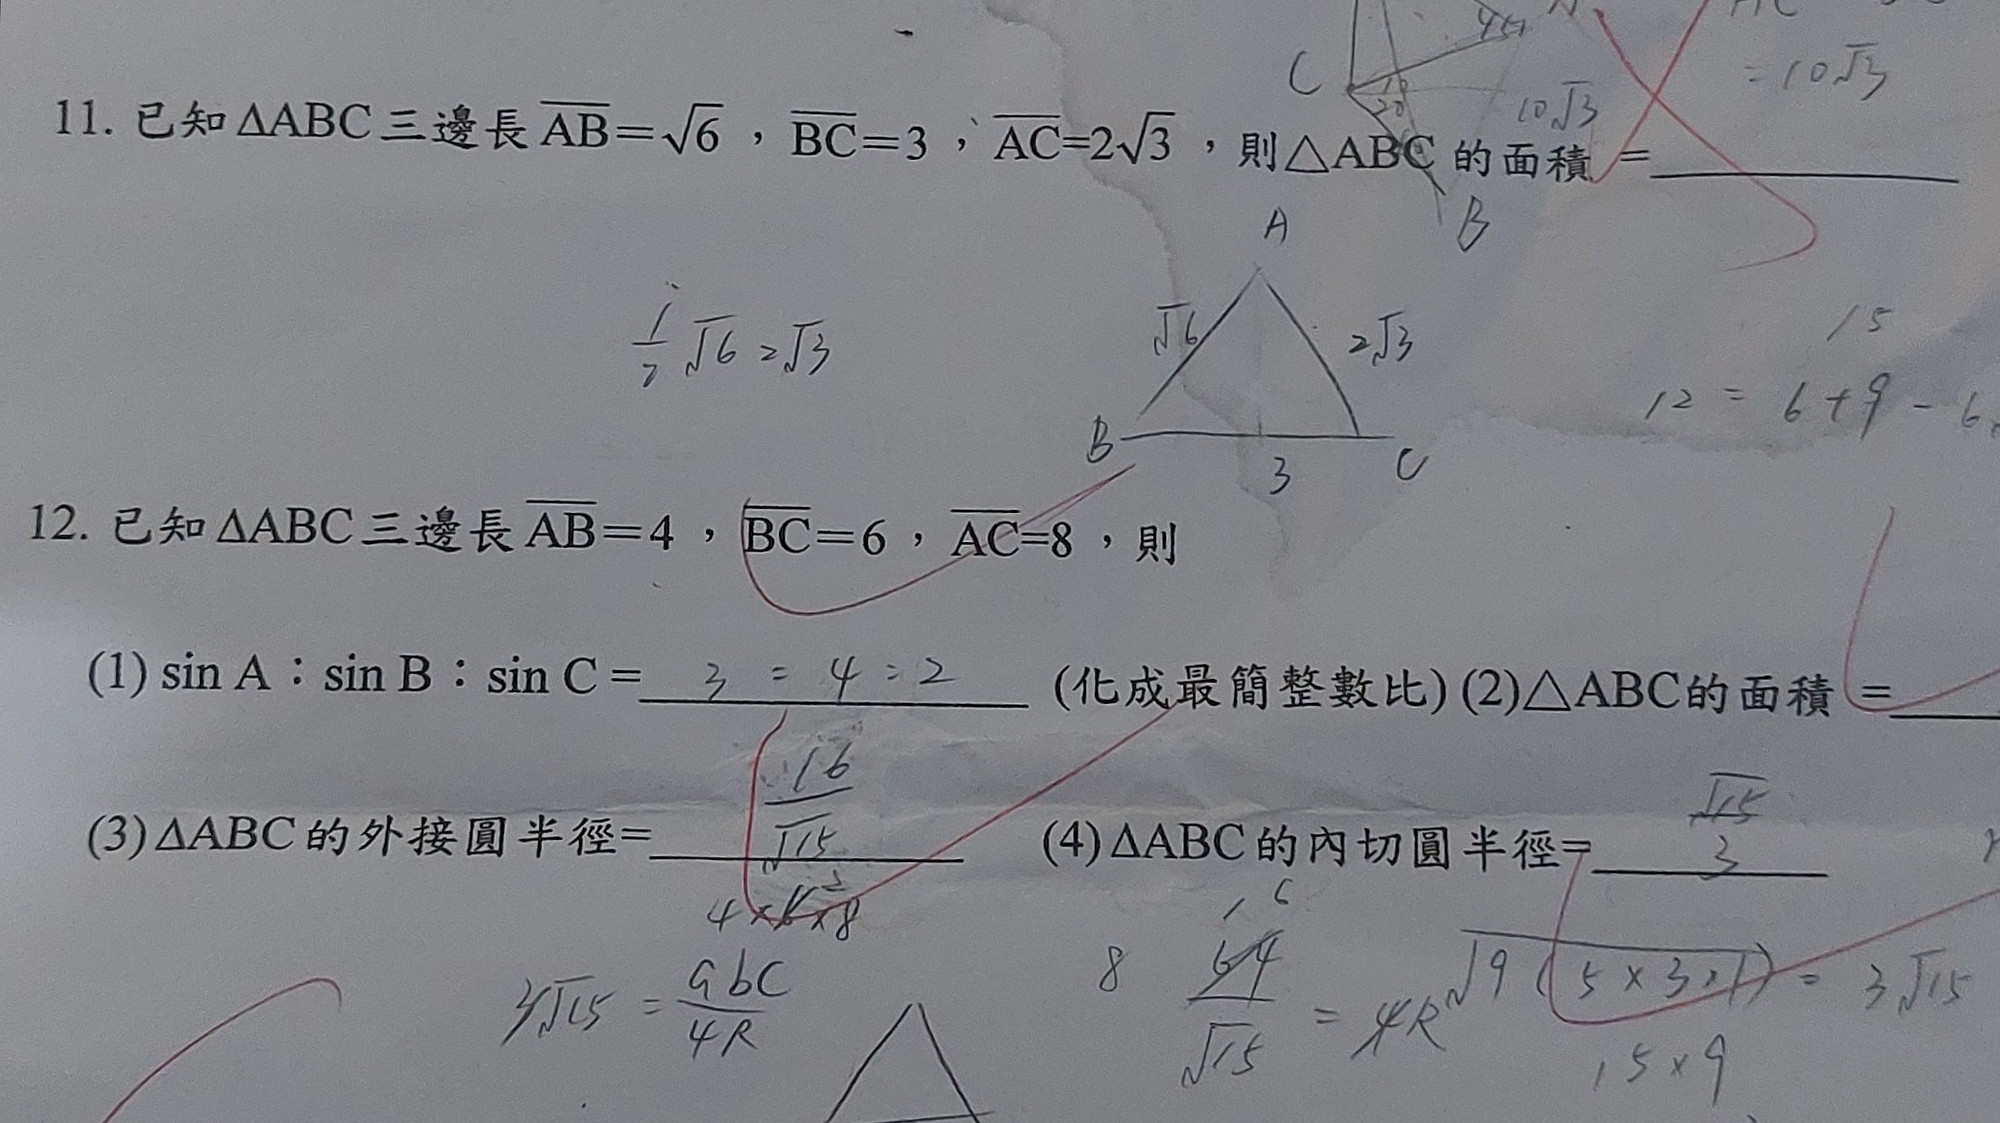 45
C
= 10√3
10√3
11. 已知 ΔABC 三邊長 AB=√6 , BC=3 , AC=2√3 , 則△ABC 的面積 =
B
A
1/2 √6 2√3
√6
2√3
15
12 = 6 + 9 - 6
B
3
C
12. 已知 ΔABC 三邊長 AB=4 , BC=6 , AC=8 , 則
(1) sin A : sin B : sin C = 3 : 4 : 2 (化成最簡整數比) (2)△ABC的面積 =
(3) ΔABC 的外接圓半徑= 16/√15 (4) ΔABC 的內切圓半徑= √15/3
4×6×8
3√15 = abc/4R
8 64/√15 = 4R
√9(5×3×1) = 3√15
15×9